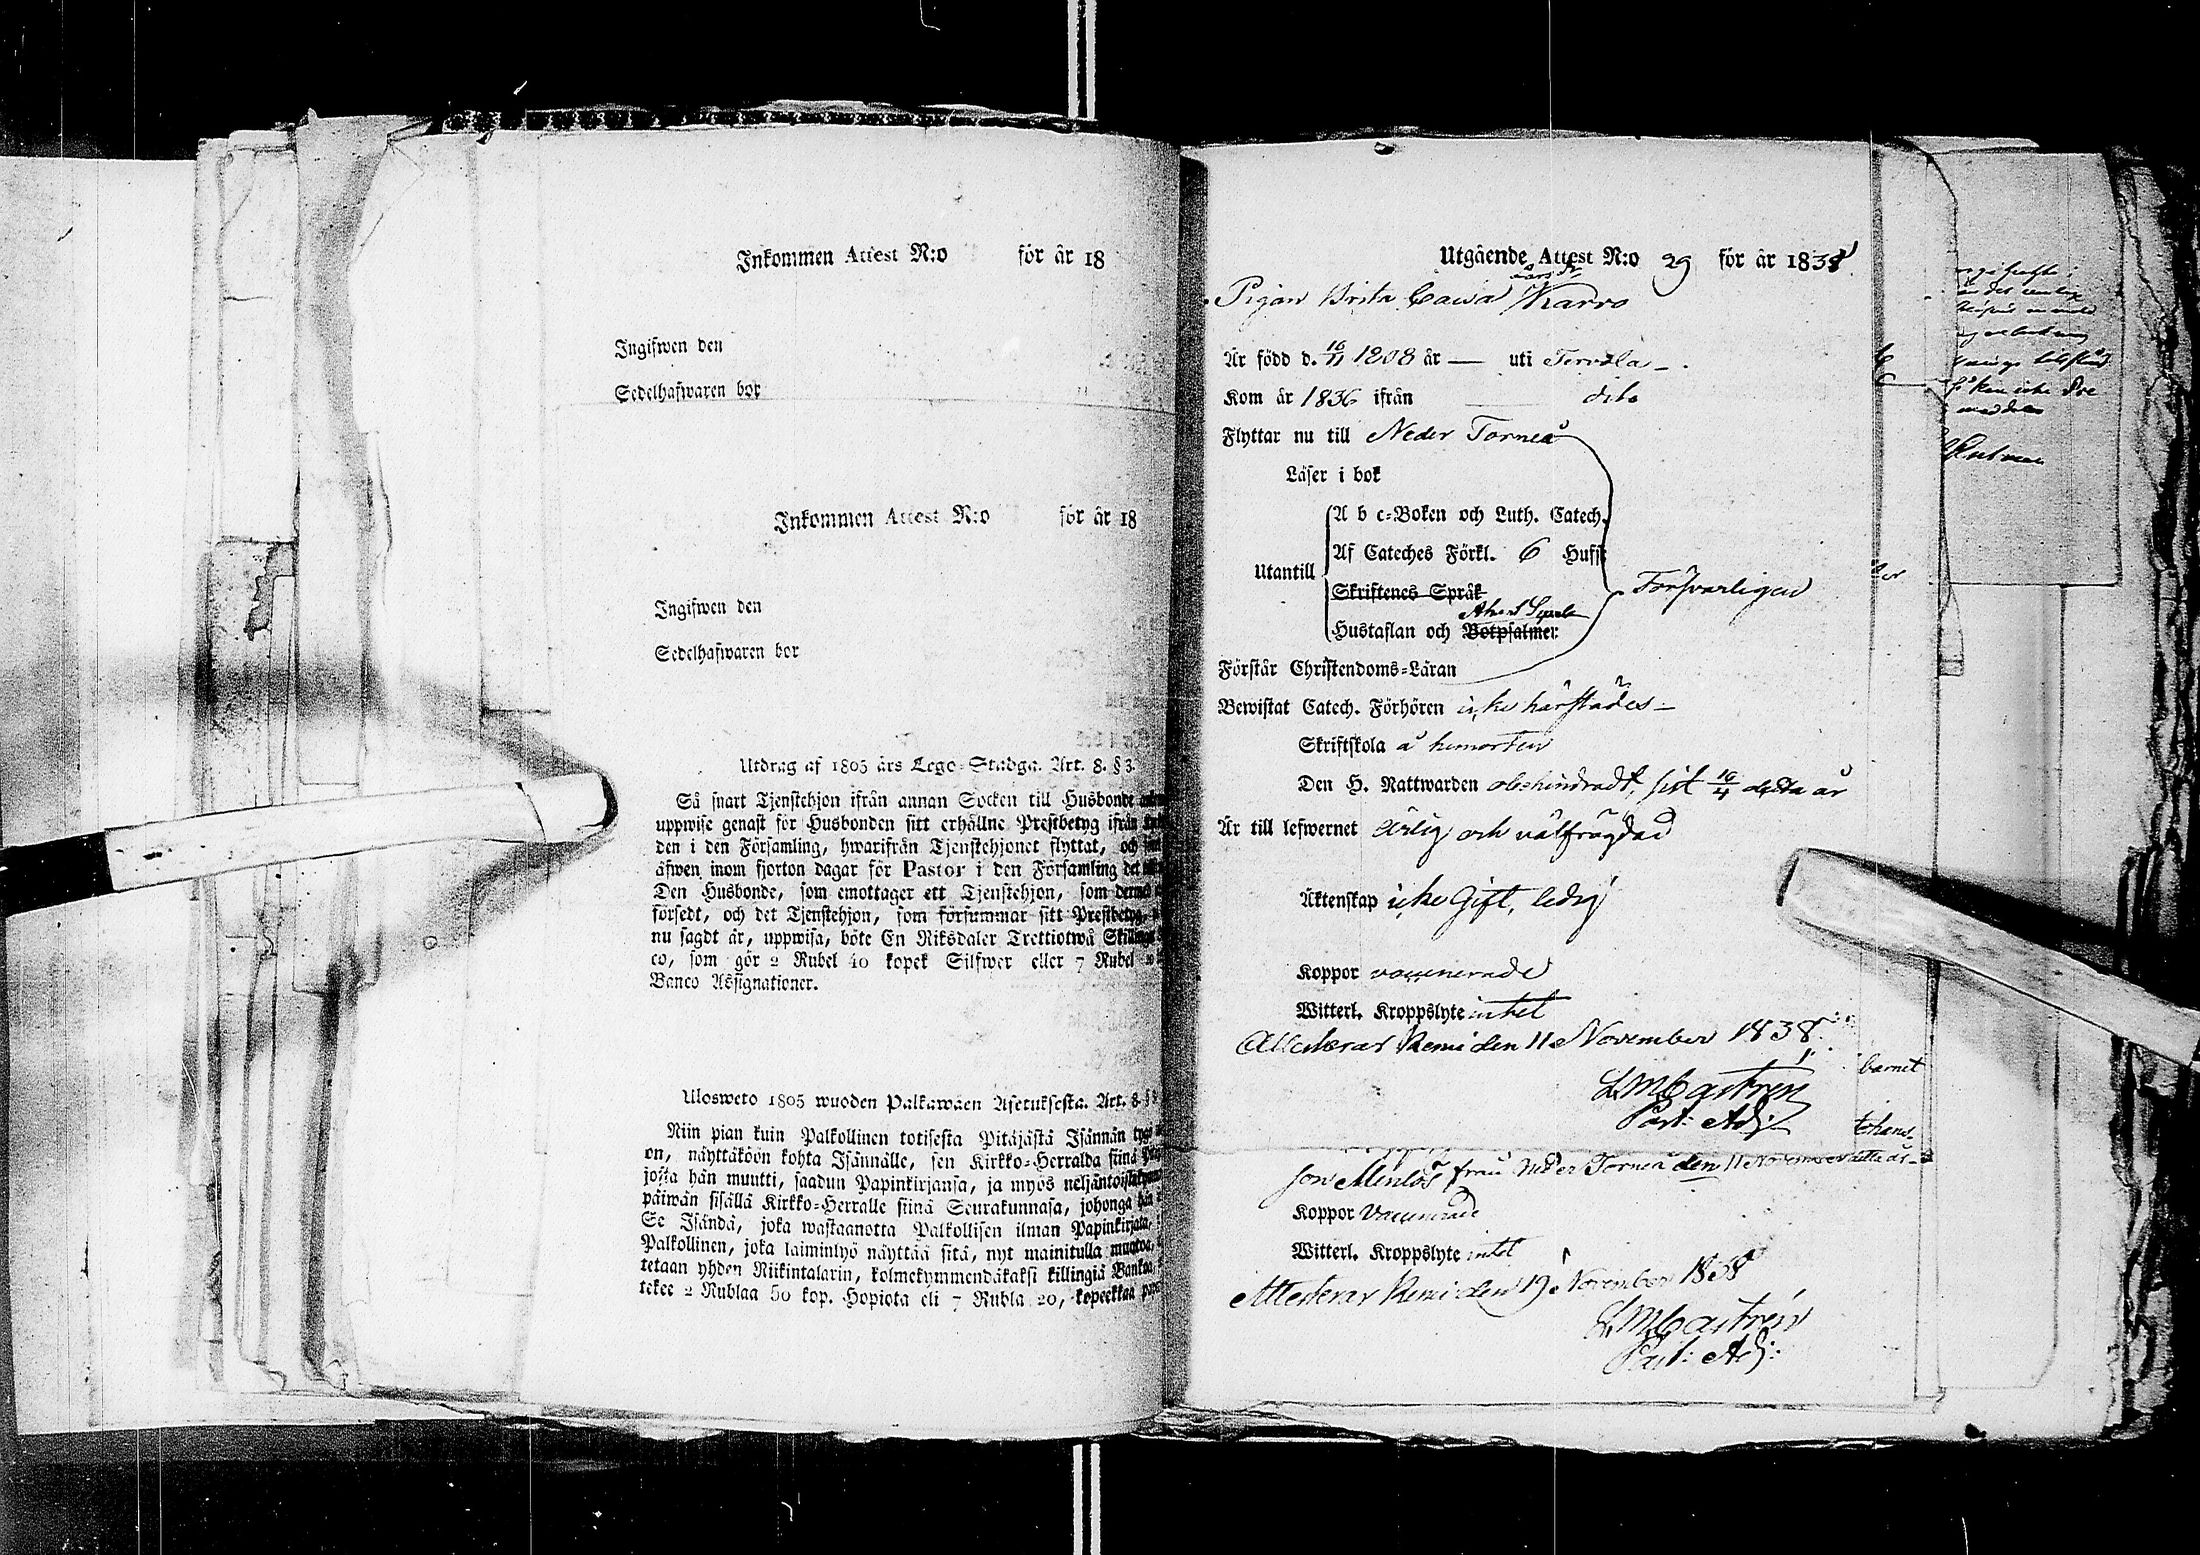 Inkommen Attest N:o för år 18
Ingifwen den
Sedelhafwaren bor
Inkommen Attest N:o för år 18
Ingifwen den
Sedelhafwaren bor
Utdrag af 1805 års Lego-Stadga. Art. 8. § 3.
Så snart Tjenstehjon ifrån annan Socken till Husbonde
uppwise genast för Husbonden sitt erhållne Prestbetyg ifrån
den i den Församling, hwarifrån Tjenstehjonet flyttat, och
äfwen inom fjorton dagar för Pastor i den Församling det
Den Husbonde, som emottager ett Tjenstehjon, som
försedt, och det Tjenstehjon, som försummar sitt Prestbetyg,
nu sagdt är, uppwisa, böte En Riksdaler Trettiotwå
co, som gör 2 Rubel 40 kopek Silfwer eller 7 Rubel
Banco Assignationer.
Ulosweto 1805 wuoden Palkawäen Asetuksesta. Art. 8. §
Niin pian kuin Palkollinen totisesta Pitäjästä Isännän
on, näyttäköön kohta Isännälle, sen Kirkko-Herralda siinä
josta hän muutti, saadun Papinkirjansa, ja myös
päiwän sisällä Kirkko-Herralle siinä Seurakunnasa, johonga hän
Se Isändä, joka wastaanotta Palkollisen ilman Papinkirjata,
Palkollinen, joka laiminlyö näyttää sitä, nyt mainitulla
tetaan yhden Riikintalarin, kolmekymmendäkaksi killingiä
tekee 2 Rublaa 50 kop. Hopiota eli 7 Rubla 20, kopeekkaa
Utgående Attest N:o 29 för år 1838
Pigan Brita Cajsa Karro
Är född d. 16/11 1808 år — uti Tervola
Kom år 1836 ifrån dito
Flyttar nu till Neder Torneå
Läser i bok
A b c-Boken och Luth. Catech.
Af Cateches Förkl. 6 Hufst
Utantill
Skriftenes Språk
Hustaflan och Botpsalmer
Försvarligen
Förstår Christendoms-Läran
Bewistat Catech. Förhören icke härstädes
Skriftskola å hemorten
Den H. Nattwarden obehindradt, sist 16/4 detta år
Är till lefwernet ärlig och välfrägdad
Äktenskap icke Gift, ledig
Koppor vaccinerade
Witterl. Kroppslyte intet
Attesterar Kemi den 11 November 1838.
L M Castrén
Past: Adj:
barnet
från Neder Torneå den 11 November
Koppor Vaccinerade
Witterl. Kroppslyte intet
Attesterar Kemi den 19 November 1838
L M Castrén
Past: Adj: